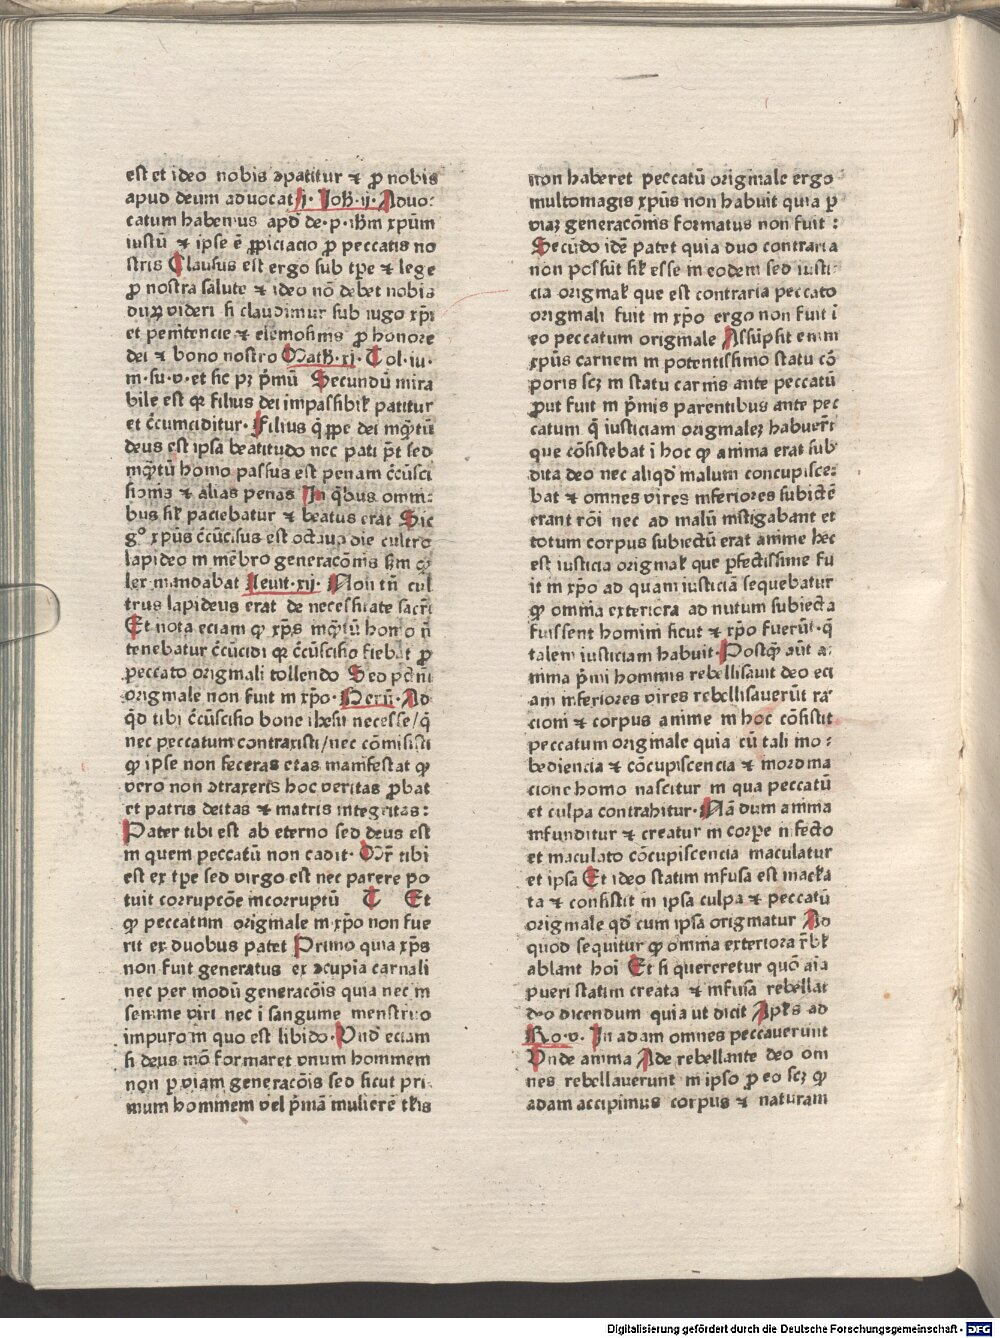 est et ideo nobis ɔpatitur ⁊ ꝓ nobis
apud deum aduocat .i. Joh̄ .ij. Aduo⸗
catum habemus apd̄ de. p. ih̄m xp̄um
iustū ⁊ ipse ē ꝓpiciacio ꝓ peccatis no
stris Clausus est ergo sub tp̄e ⁊ lege
ꝓ nostra salute ⁊ ideo nō debet nobis
duꝝ videri si claudimur sub iugo xp̄i
et penitencie ⁊ elemosinis ꝓ honore
dei ⁊ bono nostro Math̄. xi. Col. iu.
m. su. v. et sic pꝫ p̄mū Secundū mira
bile est ꝙ filius dei impassibil̄ patitur
et c̄cumciditur. Filius q̄ ꝓpe dei inq̄tū
deus est ipsa beatitudo nec pati p̄t sed
inq̄tū homo passus est penam c̄cūsci
sionis ⁊ alias penas In q̄bus omni⸗
bus sil̄ paciebatur ⁊ beatus erat Sic
gͦ xp̄us c̄cūcisus est octaua die cultro
lapideo in mēbro generacōnis sm̄ ꝙ
lex mandabat Leuit. xij. Non tn̄ cul
trus lapideus erat de necessitate sacr̄i
Et nota eciam ꝙ xp̄s inq̄tū homo n̄
tenebatur c̄cūcidi ꝙ c̄cūscisio fiebat ꝓ
peccato originali tollendo Sed pctm̄
originale non fuit in xp̄o. Bern̄. Ad
qd̄ tibi c̄cūscisio bone ihesu necesse/q̄
nec peccatum contraxisti/nec cōmisisti
ꝙ ipse non feceras etas manifestat ꝙ
vero non ɔtraxeris hoc veritas ꝓbat
et patris deitas ⁊ matris integritas:
Pater tibi est ab eterno sed deus est
in quem peccatū non cadit. Mr̄ tibi
est ex tp̄e sed virgo est nec parere po
tuit corrupcōe incorruptū C Et
ꝙ peccatum originale in xp̄o non fue
rit ex duobus patet Primo quia xp̄s
non fuit generatus ex ɔcupīa carnali
nec per modū generacōis quia nec in
semine viri nec i sanguine menstruo
impuro in quo est libido. Vnd eciam
si deus mō formaret vnum hominem
non ꝑ viam generacōis sed sicut pri
mum hominem vel p̄mā mulierē tal̄is
non haberet peccatū originale ergo
multomagis xp̄us non habuit quia ꝑ
viaꝫ generacōnis formatus non fuit :
Secūdo idē patet quia duo contraria
non possūt sil̄ esse in eodem sed iusti⸗
cia original̄ que est contraria peccato
originali fuit in xp̄o ergo non fuit ī
eo peccatum originale Assūpsit enim
xp̄us carnem in potentissimo statu cō
poris scꝫ in statu carnis ante peccatū
ꝓut fuit in p̄mis parentibus ante pec
catum q̄ iusticiam originaleꝫ habuer̄t
que cōsistebat ī hoc ꝙ anima erat sub
dita deo nec aliqd̄ malum concupisce⸗
bat ⁊ omnes vires inferiores subictē
erant rōi nec ad malū instigabant et
totum corpus subiectū erat anime hec
est iusticia original̄ que ꝑfectissime fu
it in xp̄o ad quam iusticiā sequebatur
ꝙ omnia exteriora ad nutum subiecta
fuissent homini sicut ⁊ xp̄o fuerūt. q̄
talem iusticiam habuit. Postq̄ aūt a⸗
nima p̄mi hominis rebellisauit deo eci
am inferiores vires rebellisauerūt ra⸗
cioni ⁊ corpus anime in hoc cōsistit
peccatum originale quia cū tali ino⸗
bediencia ⁊ cōcupiscencia ⁊ inordina
cione homo nascitur in qua peccatū
et culpa contrahitur. Nā dum anima
infunditur ⁊ creatur in corpe īfecto
et maculato cōcupiscencia maculatur
et ipsa Et ideo statim infusa est macl̄a
ta ⁊ consistit in ipsa culpa ⁊ peccatū
originale qd̄ cum ipsa originatur Ad
quod sequitur ꝙ omnia exteriora r̄bl̄
ablant hoī Et si quereretur quō aīa
pueri statim creata ⁊ infusa rebellat
deo dicendum quia ut dicit Apl̄s ad
Ro. v. In adam omnes peccauerunt
Vnde anima Ade rebellante deo om
nes rebellauerunt in ipso ꝓ eo scꝫ ꝙ
adam accipimus corpus ⁊ naturam
Digitalisierung gefördert durch die Deutsche Forschungsgemeinschaft - DFG